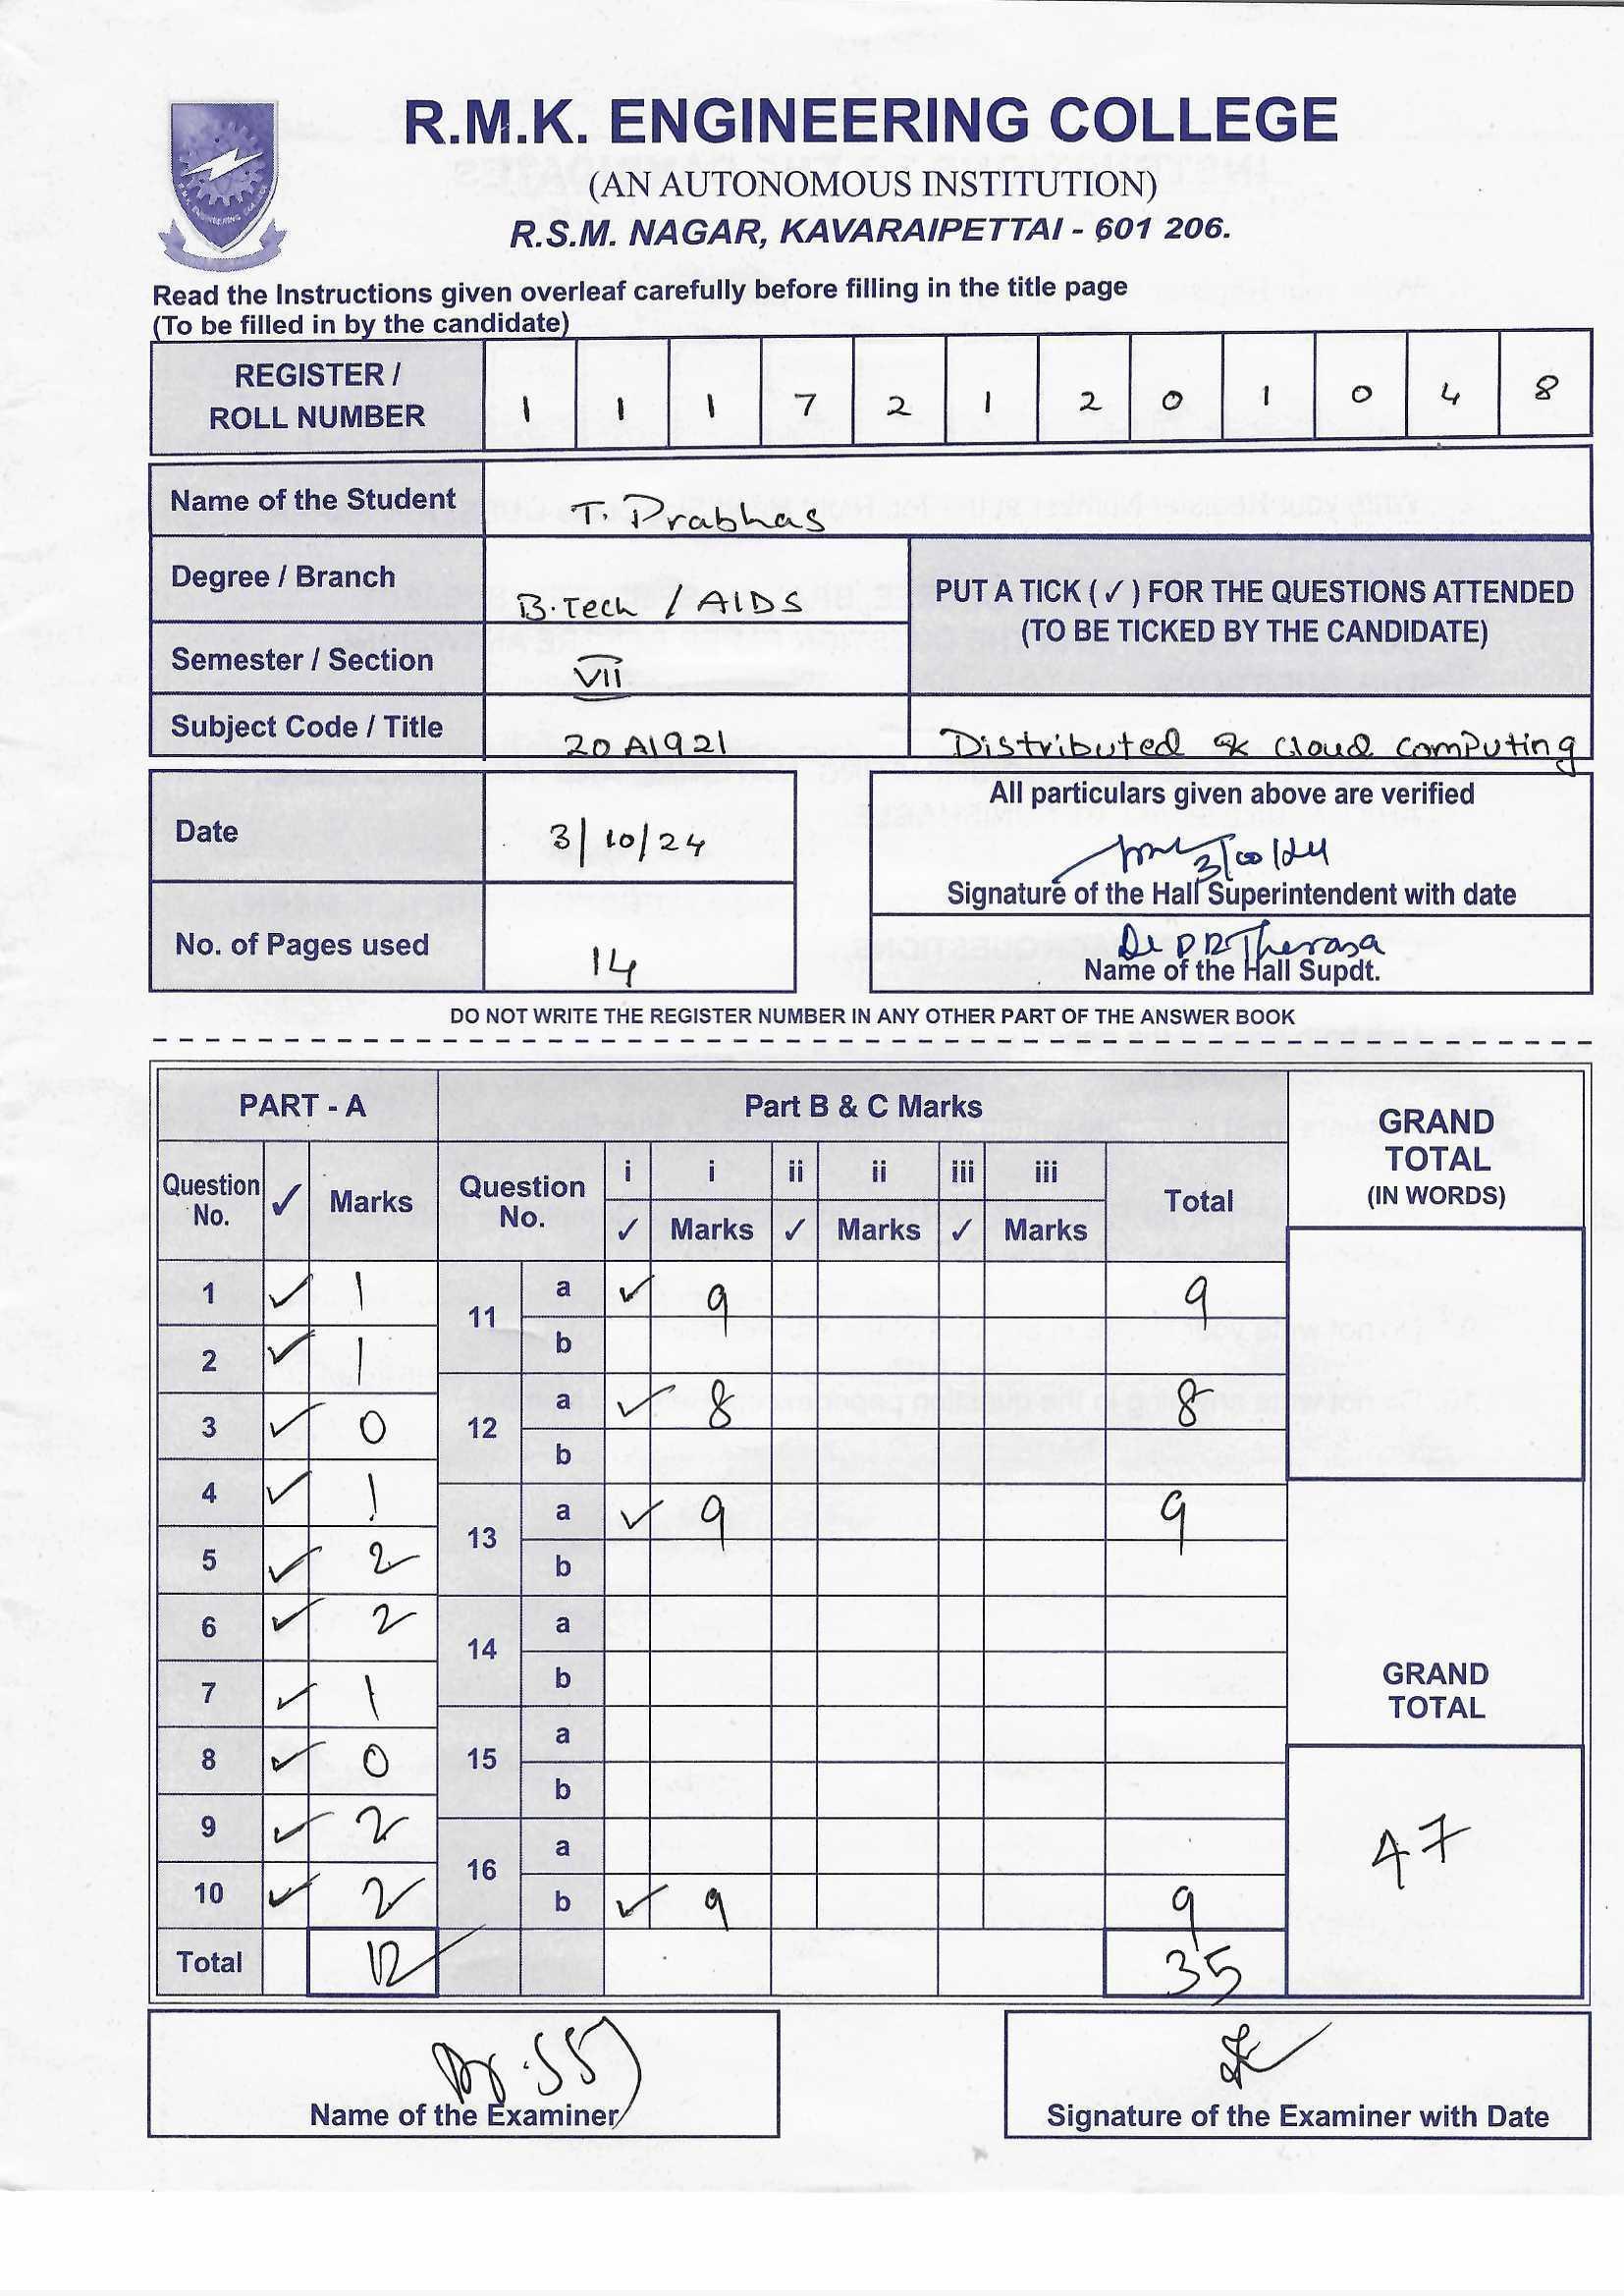 R.M.K. ENGINEERING COLLEGE
(AN AUTONOMOUS INSTITUTION)
R.S.M. NAGAR, KAVARAIPETTAI - 601 206.
R.M.K. ENGINEERING COLLEGE
Read the Instructions given overleaf carefully before filling in the title page
(To be filled in by the candidate)
REGISTER / ROLL NUMBER 1 1 1 7 2 1 2 0 1 0 4 8
Name of the Student T. Prabhas
Degree / Branch B.Tech / AIDS
PUT A TICK ( ✓ ) FOR THE QUESTIONS ATTENDED
(TO BE TICKED BY THE CANDIDATE)
Semester / Section VII
Subject Code / Title 20AI921 Distributed & cloud computing
Date 3/10/24
All particulars given above are verified
Signature of the Hall Superintendent with date
No. of Pages used 14
Name of the Hall Supdt.
DO NOT WRITE THE REGISTER NUMBER IN ANY OTHER PART OF THE ANSWER BOOK
PART - A Part B & C Marks GRAND TOTAL (IN WORDS)
Question No. ✓ Marks Question No. i i ii ii iii iii Total
✓ Marks ✓ Marks ✓ Marks
1 ✓ 1 11 a ✓ 9 9
2 ✓ 1 b
3 ✓ 0 12 a ✓ 8 8
b
4 ✓ 1 13 a ✓ 9 9
5 ✓ 2 b
6 ✓ 2 14 a
7 ✓ 1 b
GRAND TOTAL
8 ✓ 0 15 a
b
9 ✓ 2 16 a
47
10 ✓ 2 b ✓ 9 9
Total 12 35
Name of the Examiner
Signature of the Examiner with Date